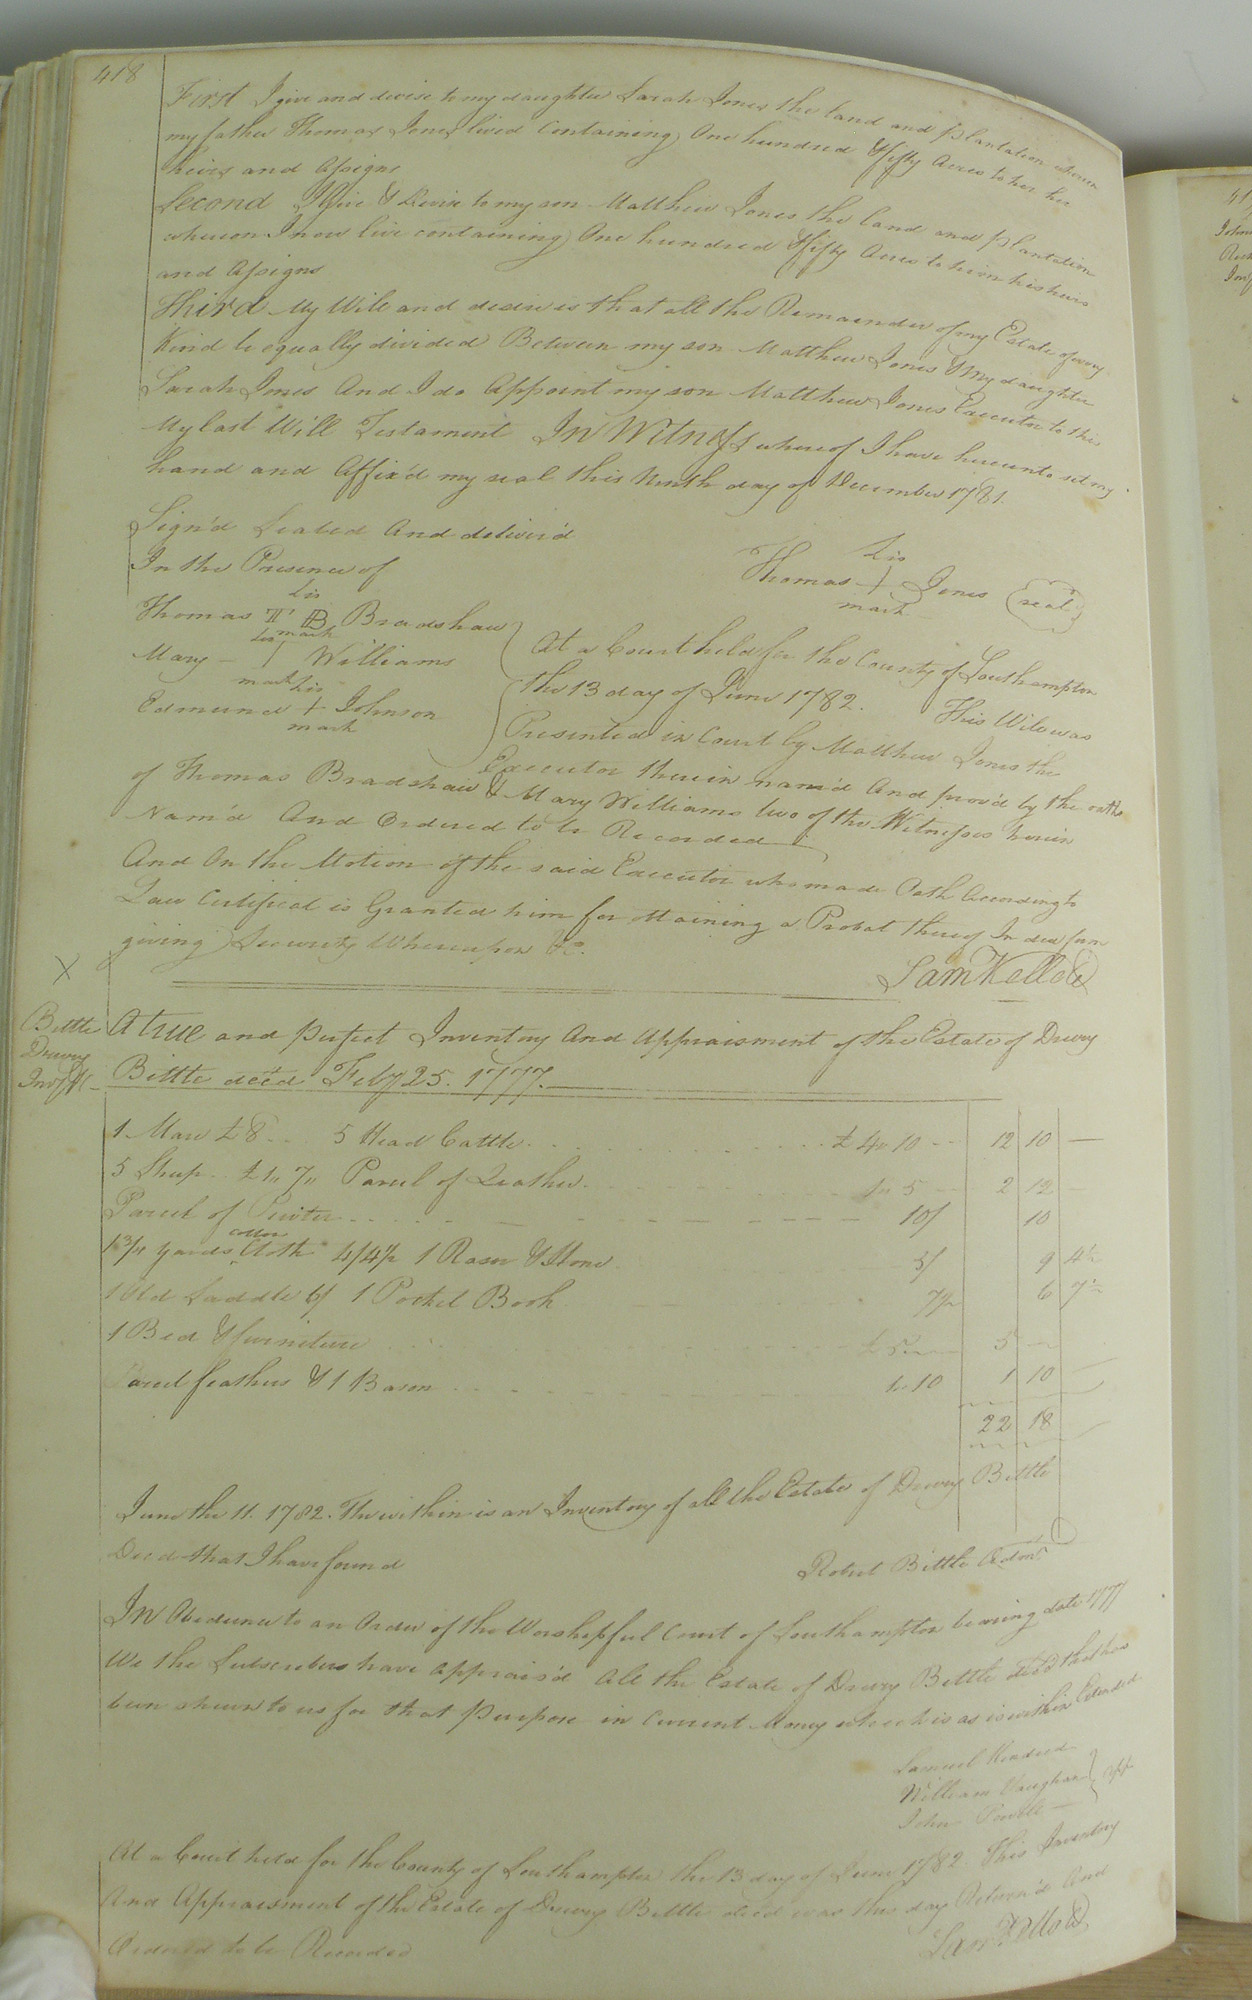 418
First I give and devise to my daughter Sarah Jones the land and plantation whereon
my father Thomas Jones lived Containing One hundred & fifty Acres to her her
heirs and Assigns
Second I Give & Devise to my son Matthew Jones the land and plantation
whereon I now live containing One hundred & fifty Acres to him his heirs
and Assigns
Third My Will and desire is that all the Remainder of my Estate of every
Kind be equally divided Between my son Matthew Jones & my daughter
Sarah Jones And I do Appoint my son Matthew Jones Executor to this
My last Will Testament In Witness whereof I have hereunto set my
hand and Affix'd my seal this Ninth day of December 1781.
Sign'd Sealed And deliver'd
In the Presence of
his
Thomas + Jones (seal)
mark
his
Thomas TB Bradshaw
mark
her
Mary | Williams
mark
his
Edmund + Johnson
mark
At a Court held for the County of Southampton
the 13 day of June 1782. This Will was
Presented in Court by Matthew Jones the
Executor therein nam'd And prov'd by the oaths
of Thomas Bradshaw & Mary Williams two of the Witnesses herein
Nam'd And Ordered to be Recorded
And On the Motion of the said Executor who made Oath According to
Law Certificat is Granted him for Obtaining a Probat thereof In due form
giving Security Whereupon &c.
Sam Kello
X
Bittle
Drewry
Inv
A true and perfect Inventory And Appraisment of the Estate of Drewry
Bittle dec'd Feby 25. 1777.
1 Mare £8 5 Head Cattle £4 10 12 10 —
5 Sheep £1 7 Parcel of Leather 1 5 2 12 —
Parcel of Pewter 10/ 10
1 3/4 yards cotton Cloth 4/4½ 1 Rasor & Hone 5/ 9 4½
1 Old Saddle 6/ 1 Pocket Book 7½ 6 7½
1 Bed & furniture £5 5 —
Parcel feathers & 1 Bason 1 10 1 10 —
22 18
June the 11. 1782. The within is an Inventory of all the Estate of Drewry Bittle
Dec'd that I have found
Robert Bittle Adm
In Obedience to an Order of the Worshipful Court of Southampton bearing date 1777
We the Subscribers have Apprais'd All the Estate of Drewry Bittle dec'd that has
been shewn to us for that Purpose in Current Money which is as is within Extended
Samuel
William Vaughan
John
At a Court held for the County of Southampton the 13 day of June 1782. This Inventory
And Appraisment of the Estate of Drewry Bittle dec'd was this day Return'd And
Ordered to be Recorded
Sam Kello